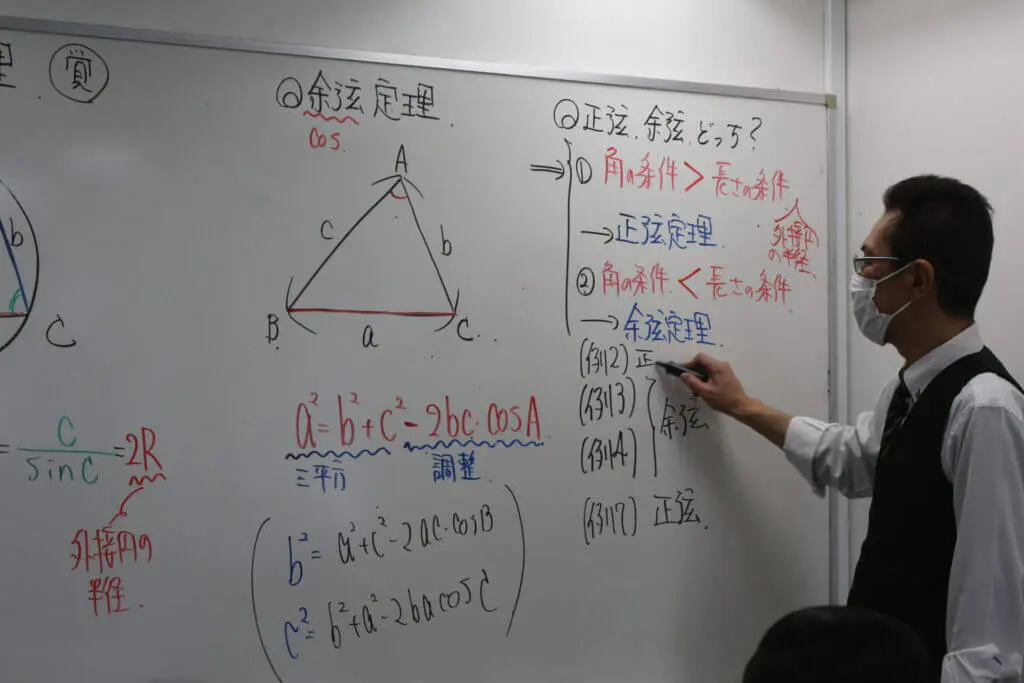 理
賞
b
C
= c/sinC = 2R
外接円の
半径.
余弦定理.
cos.
A
c
b
B
a
C
a²=b²+c²-2bc·cosA
三平方
調整
b²= a²+c²-2ac·cosB
c²= b²+a²-2ba cosC
正弦、余弦、どっち?
⇒ ① 角の条件 > 長さの条件
外接円
の半径.
→正弦定理
② 角の条件 < 長さの条件
→ 余弦定理
(例2) 正
(例3)
余弦
(例4)
(例7) 正弦.